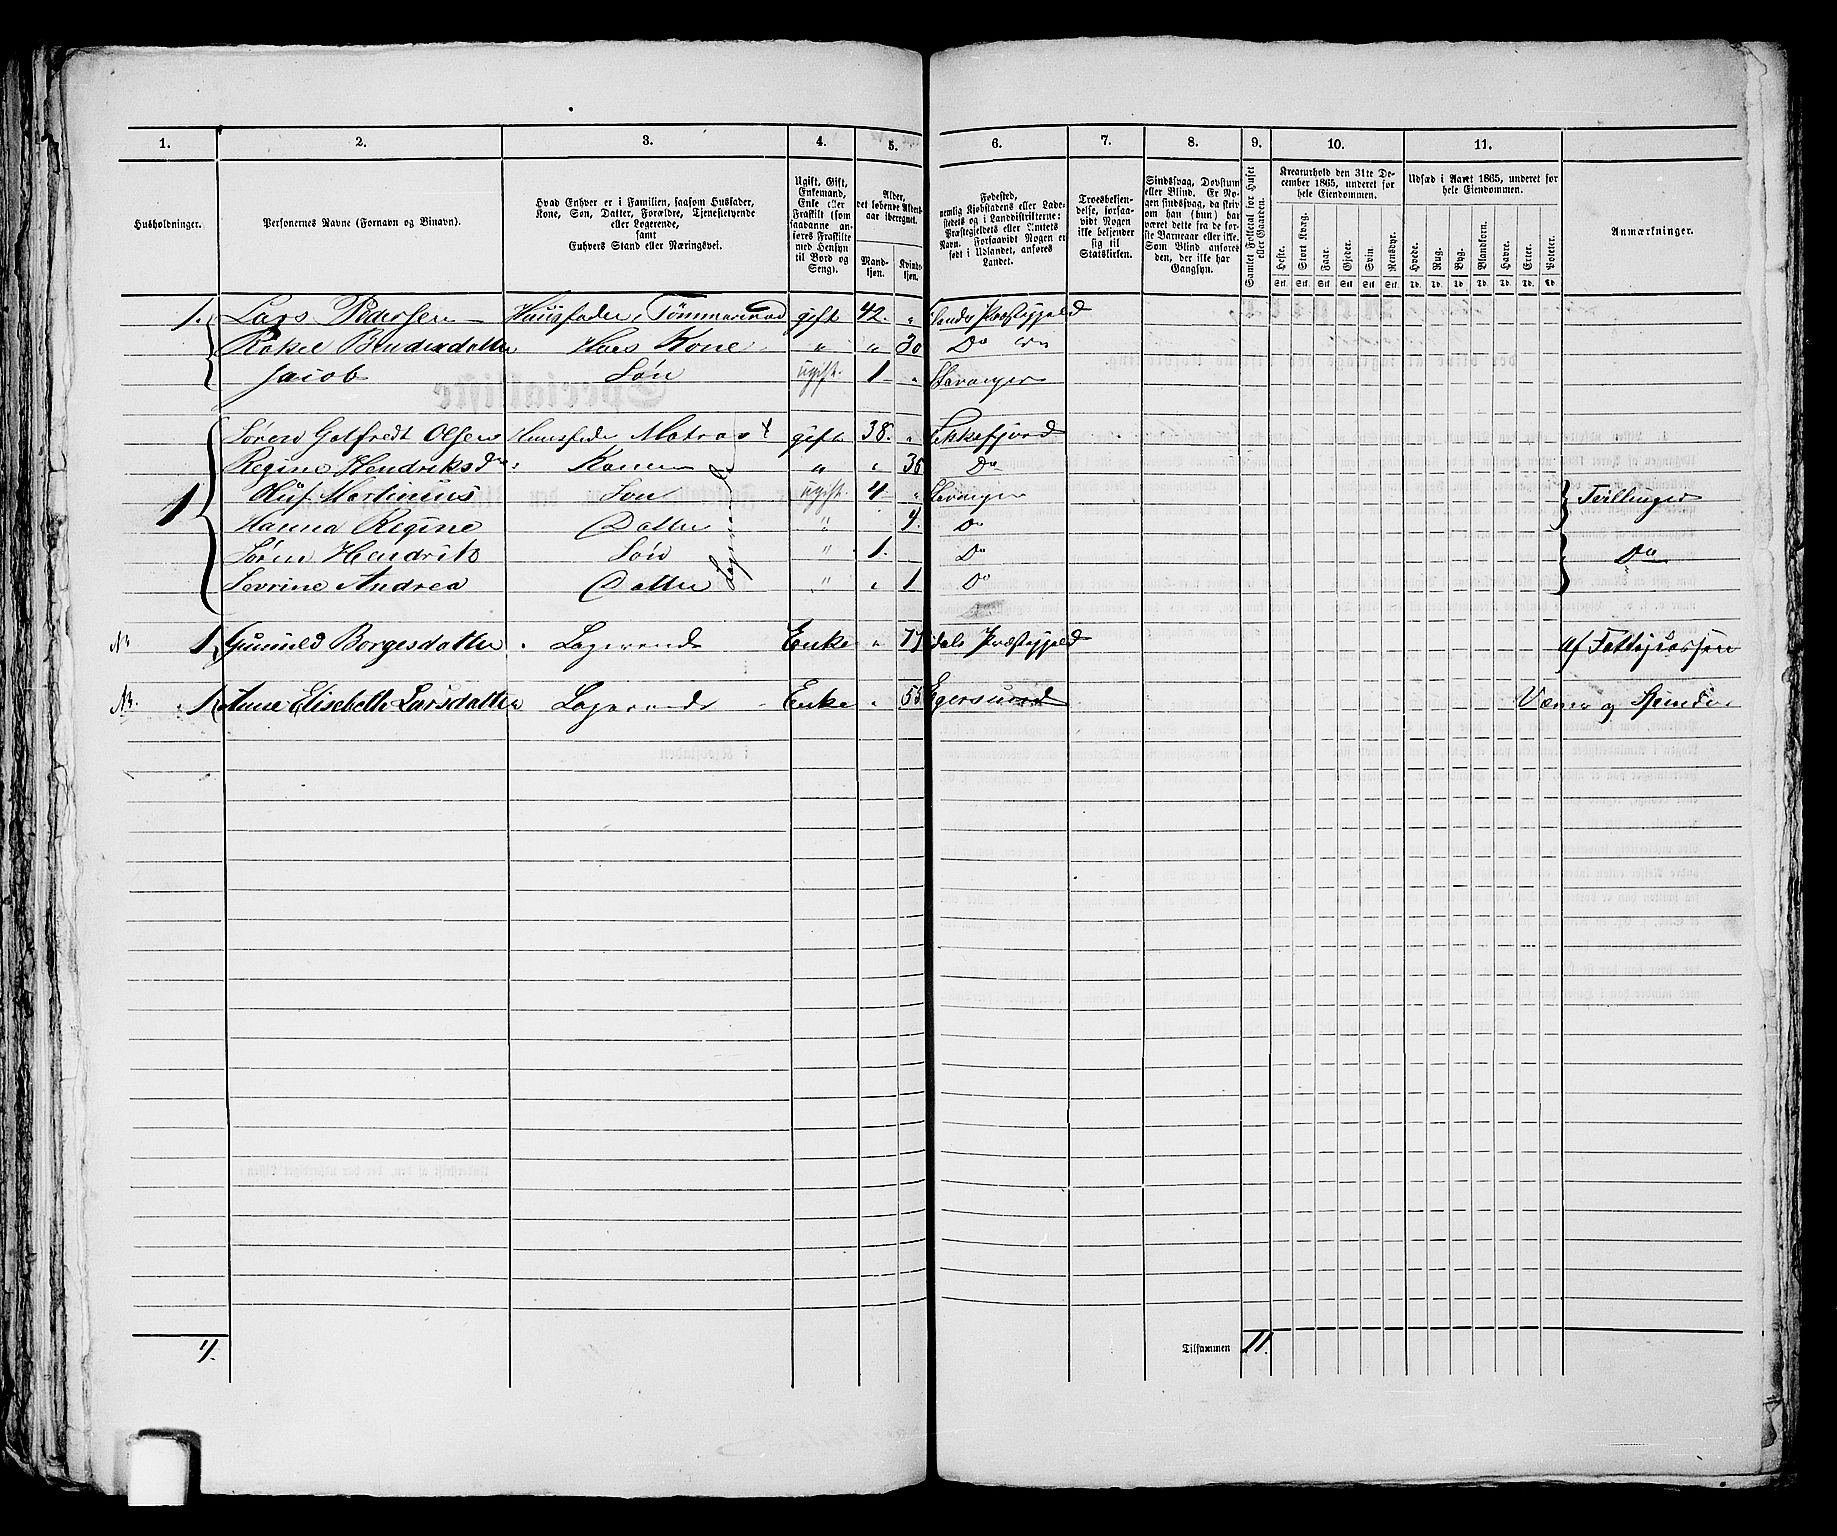 1. 2. 3. 4. 5. 6. 7. 8. 9. 10. 11.
Husholdninger.
Personernes Navne (Fornavn og Binavn).
Hvad Enhver er i Familien, saasom Husfader,
Kone, Søn, Datter, Forældre, Tjenestetyende
eller Logerende,
samt
Enhvers Stand eller Næringsvei.
Ugift, Gift,
Enkemand,
Enke eller
Fraskilt (som
saadanne an-
føres Fraskilte
med Hensyn
til Bord og
Seng).
Alder,
det løbende Alders-
aar iberegnet.
Mand-
kjøn.
Kvind-
kjøn.
Fødested,
nemlig Kjøbstadens eller Lade-
stedets og i Landdistrikterne:
Præstegjeldets eller Amtets
Navn. Forsaavidt Nogen er
født i Udlandet, anføres
Landet.
Troesbekjen-
delse, forsaa-
vidt Nogen
ikke bekjender
sig til
Statskirken.
Sindssvag, Døvstum
eller Blind. Er No-
gen sindssvag, da skriv
om han (hun) har
været dette fra de før-
ste Barneaar eller ikke.
Som Blind anføres
den, der ikke har
Gangsyn.
Samlet Folketal for Huset
eller Gaarden.
Kreaturhold den 31te De-
cember 1865, underet for
hele Eiendommen.
Heste. Stort Kvæg. Faar. Gjeder. Svin Rensdyr.
Stk. Stk. Stk. Stk. Stk. Stk.
Udsæd i Aaret 1865, underet for
hele Eiendommen.
Hvede. Rug. Byg. Blandkorn. Havre. Erter. Poteter.
Td. Td. Td. Td. Td. Td. Td.
Anmærkninger.
1. Lars Pedersen Huusfader, Tømmermand gift 42. " Præstegjeld
Rakel Hans Kone " " 30 Do
Jacob Søn ugift. 1 " Stavanger
1 Søren Gotfredt Olsen Huusfader Matros gift 38. " Flekkefjord
Regine Hendriksd Konen " " 36 Do
Oluf Martinius Søn ugift. 4 " Stavanger Tvillinger
Hanna Regine Datter " 4. Do
Søren Hendrik Søn " 1. Do Do
Sevrine Andrea Datter " " 1 Do
NB 1 Gunnild Borgesdatter Logerende Enke " Præstegjeld af Fattigkassen
NB. 1 Anne Elisebeth Larsdatter Logerende Enke " 55 Egersund og
4.
Tilsammen 11.